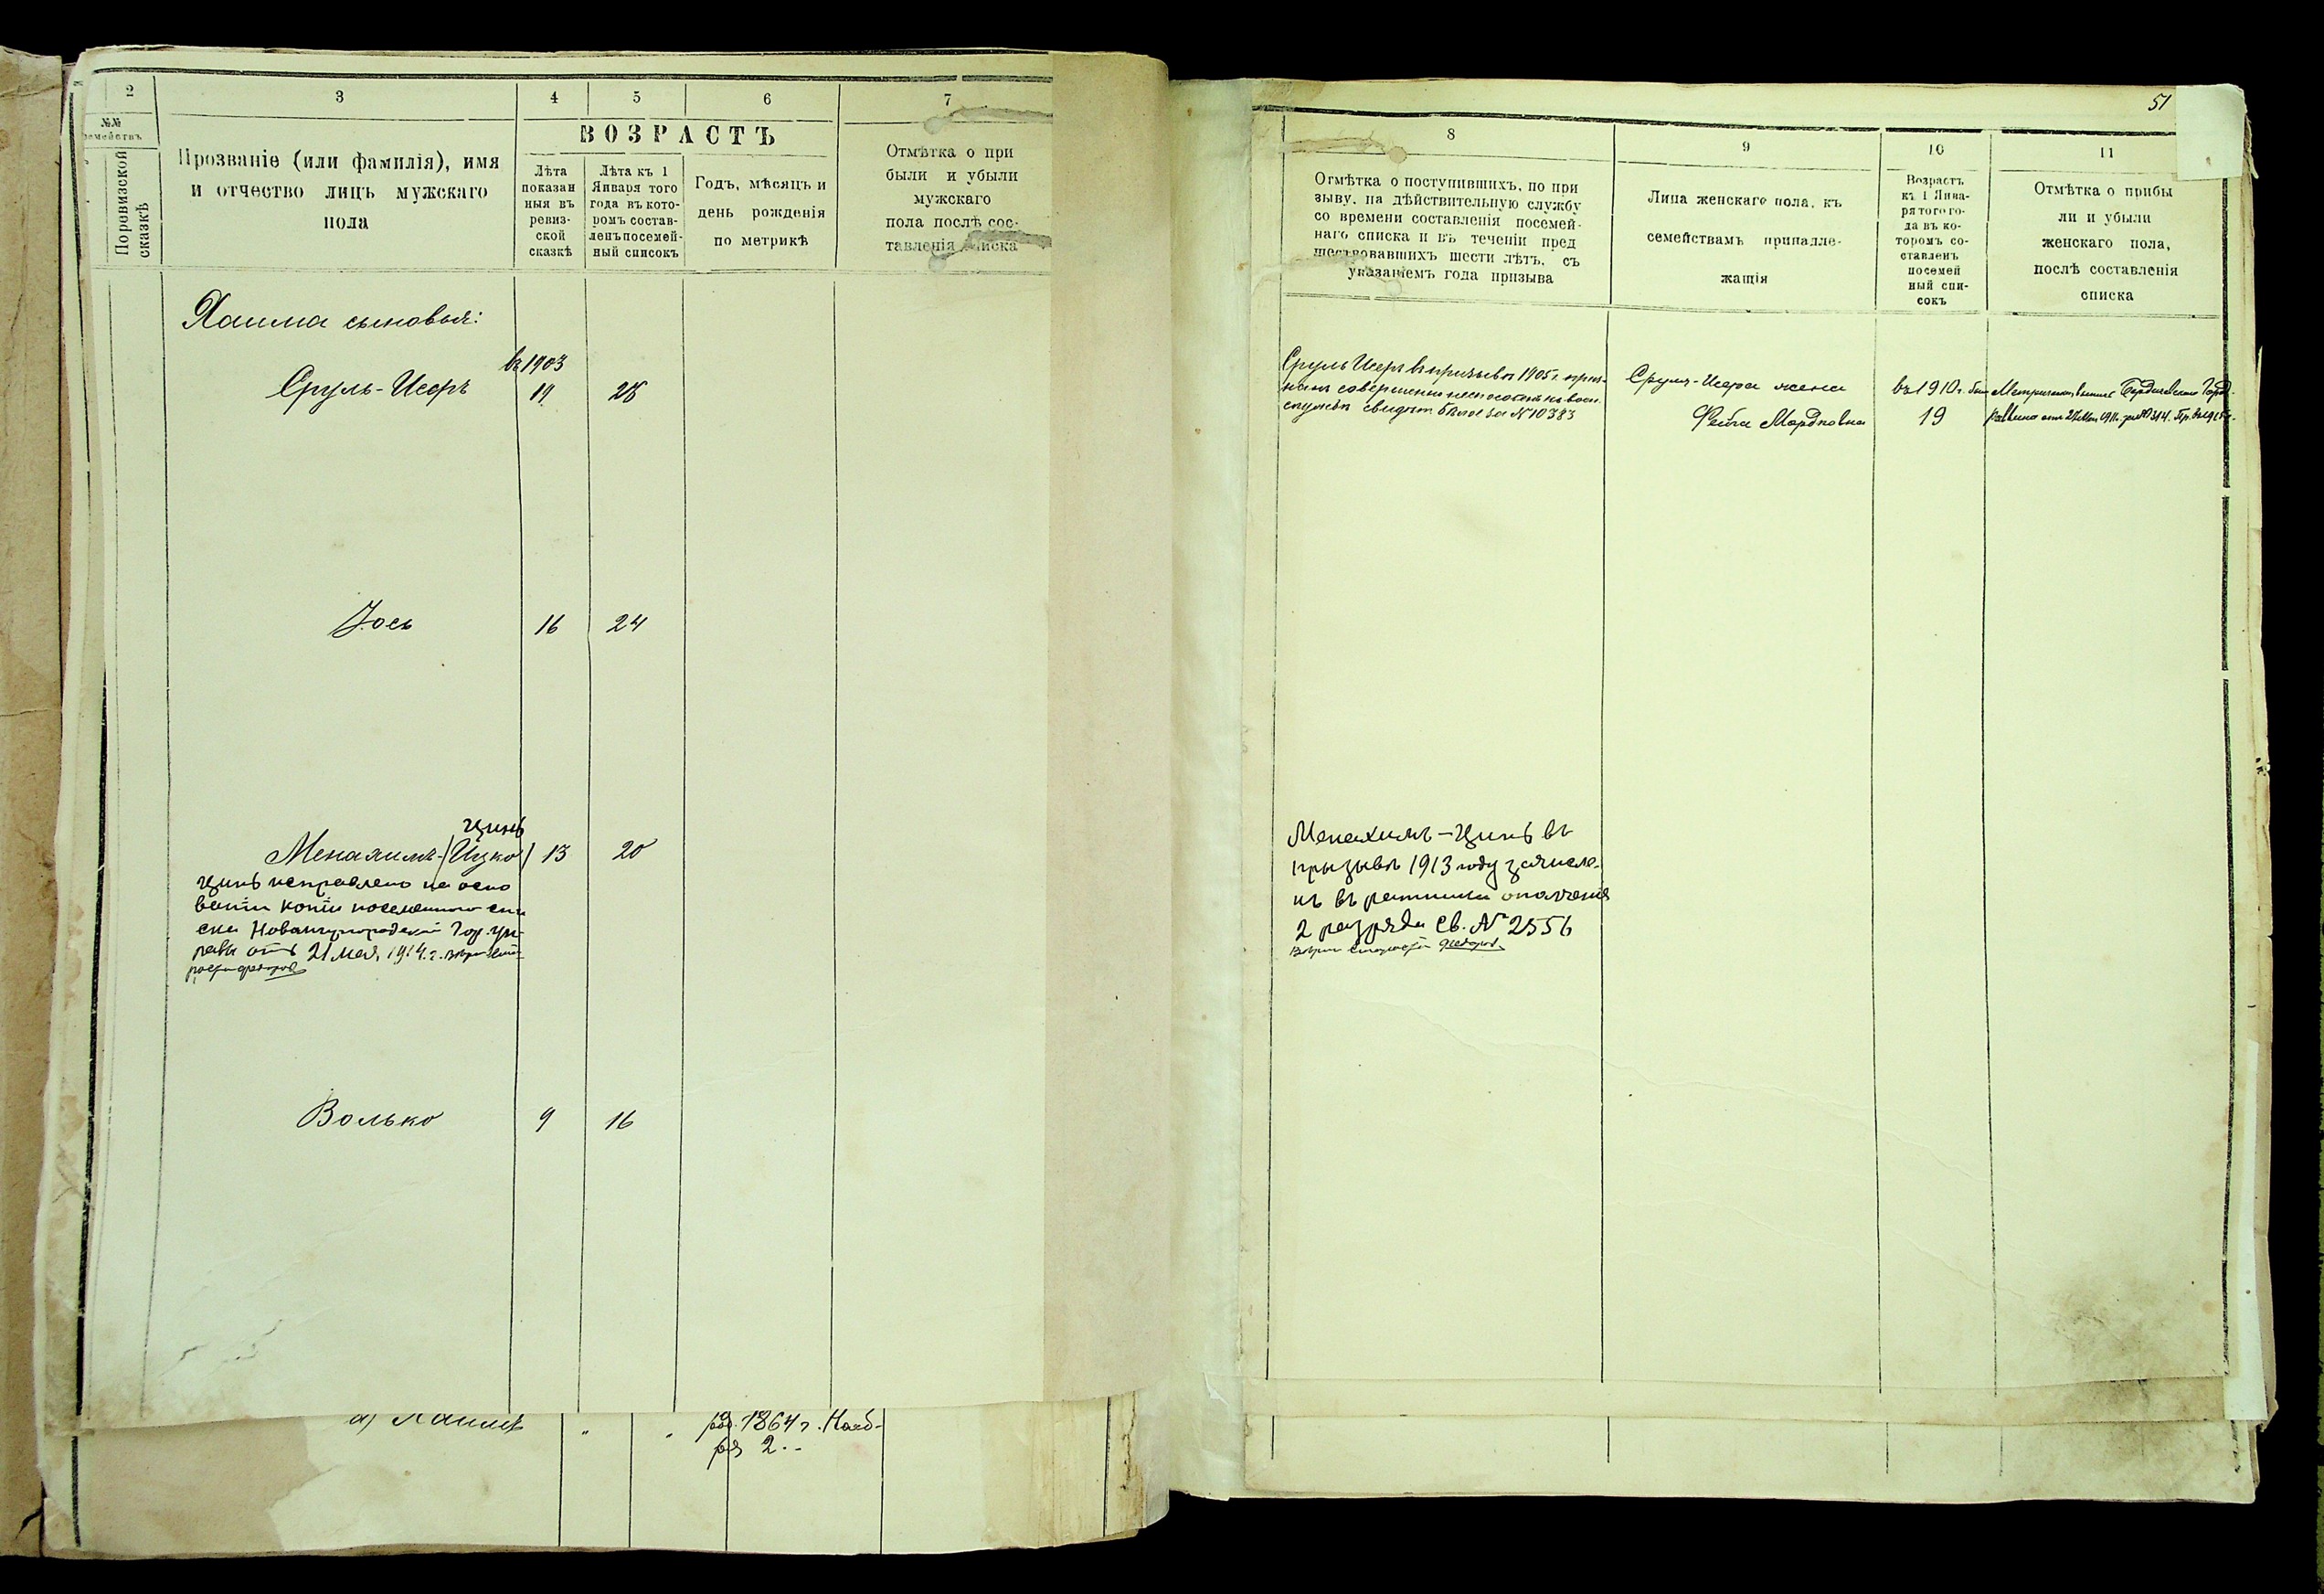 2
3
4
5
6
7
№№
семействъ
По ревизской
сказкѣ
Прозваніе (или фамилія), имя
и отчество лицъ мужскаго
пола
ВОЗРАСТЪ
Лѣта
показан
ныя въ
ревиз-
ской
сказкѣ
Лѣта къ 1
Января того
года въ кото-
ромъ состав-
ленъ посемей-
ный списокъ
Годъ, мѣсяцъ и
день рожденія
по метрикѣ
Отмѣтка о при
были и убыли
мужскаго
пола послѣ сос-
тавленія списка
Хаима сыновья:
въ 1903
Сруль-Исеръ 19 28
Іось 16 24
Цинъ
Менахимъ-(Ицко) 13 20
Цинъ исправлено на осно
ваніи копіи посемейнаго спи
ска Гор. Уп-
равы отъ 21 мая 1914 г.
Волько 9 16
а) Хаимъ " " род. 1864 г. Нояб-
ря 2.-
51
8
9
10
11
Отмѣтка о поступившихъ, по при
зыву, на дѣйствительную службу
со времени составленія посемей-
наго списка и въ теченіи пред
шествовавшихъ шести лѣтъ, съ
указаніемъ года призыва
Лица женскаго пола, къ
семействамъ принадле-
жащія
Возрастъ
къ 1 Янва-
ря того го-
да въ ко-
торомъ со-
ставленъ
посемей
ный спи-
сокъ
Отмѣтка о прибы
ли и убыли
женскаго пола,
послѣ составленія
списка
Сруль Исеръ въ призывѣ 1905 г. приз-
нанъ совершенно неспособнымъ къ воен.
службѣ свидѣт. за № 10383
Сруля-Исера жена
Фейга Мордковна
въ 1910 г. было
19
Метрическая выпись Бердичевского Город.
Раввина отъ 1911 г. за № 314.
Менахимъ-Цинъ въ
призывѣ 1913 году зачисле-
нъ въ ратники ополченія
2 разряда Св. № 2556